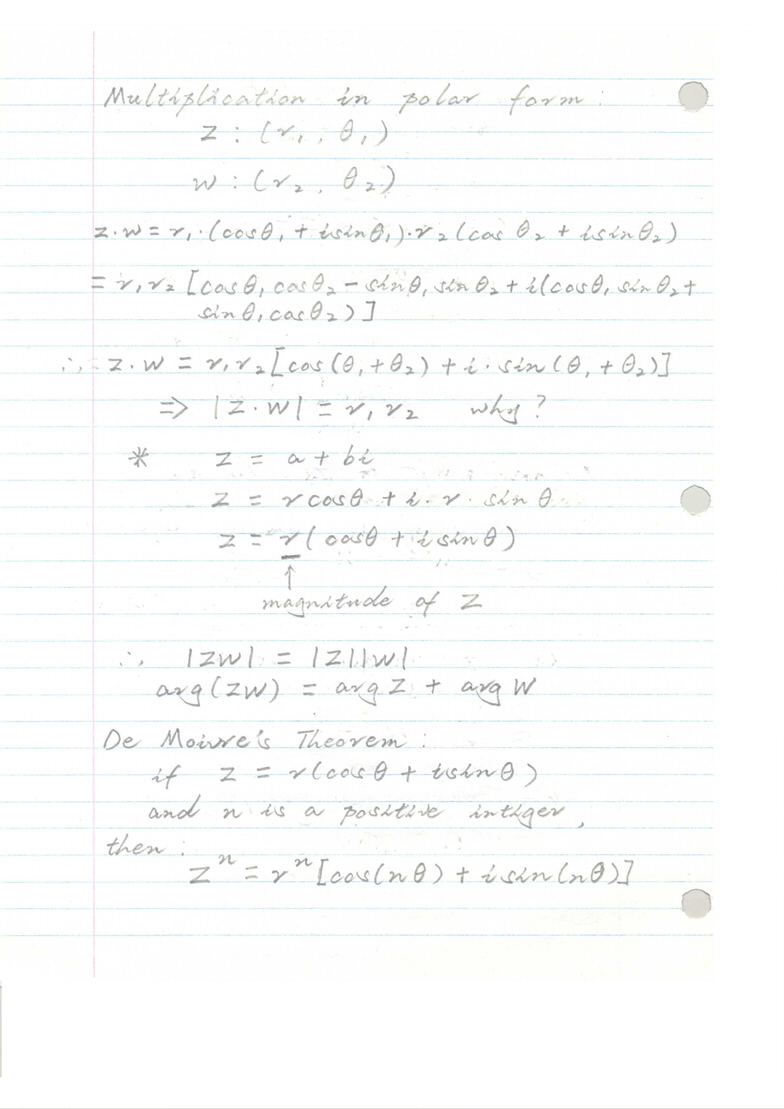 Multiplication in polar form :
z : (r₁, θ₁)
w : (r₂, θ₂)
z·w = r₁·(cosθ₁ + isinθ₁)·r₂(cos θ₂ + isinθ₂)
= r₁r₂ [cosθ₁ cosθ₂ − sinθ₁ sinθ₂ + i(cosθ₁ sinθ₂ +
sinθ₁cosθ₂)]
∴ z·w = r₁r₂[cos(θ₁+θ₂) + i·sin(θ₁+θ₂)]
⇒ |z·w| = r₁r₂ why?
* z = a + bi
z = rcosθ + i·r·sinθ
z = r(cosθ + isinθ)
↑
magnitude of z
∴ |zw| = |z||w|
arg(zw) = arg z + arg w
De Moivre's Theorem :
if z = r(cosθ + isinθ)
and n is a positive intiger,
then :
zⁿ = rⁿ[cos(nθ) + isin(nθ)]